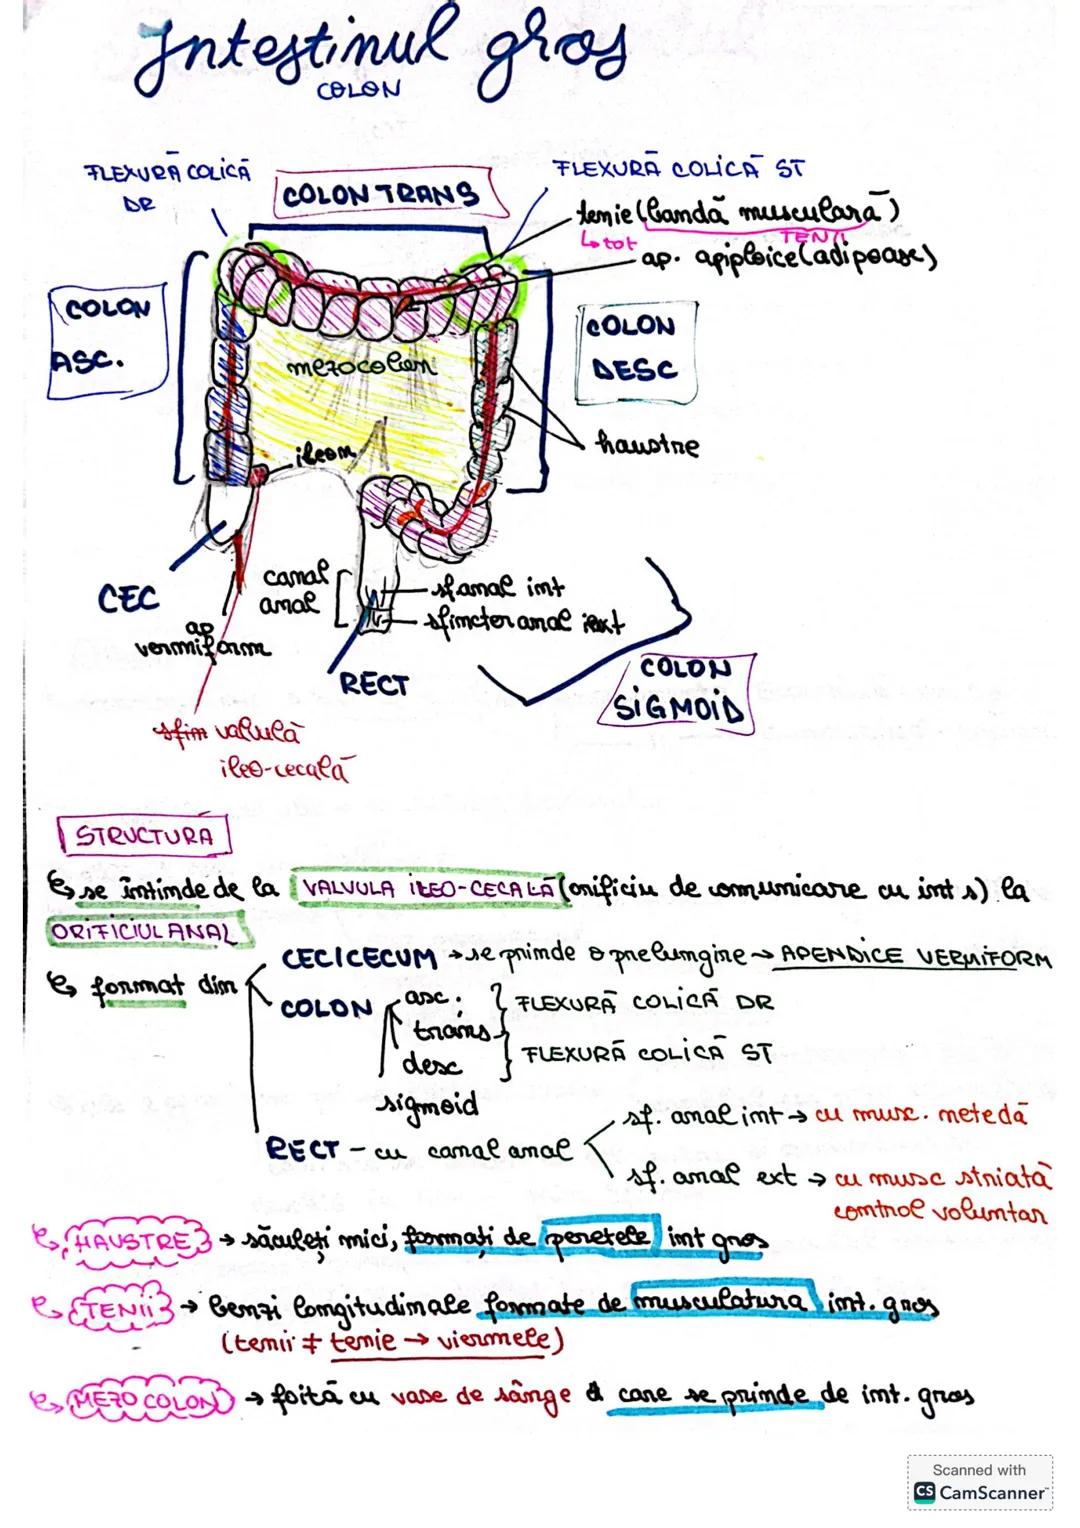 Intestinul gros
COLON
FLEXURĂ COLICĂ
DR
COLON TRANS
FLEXURĂ COLICĂ ST
tenie (bandă musculară)
↳ tot TENII
ap. apiploice (adipoase)
COLON
ASC.
COLON
DESC
mezocolon
haustre
ileon
CEC
canal
anal
sf anal int
sfincter anal ext
ap
vermiform
RECT
COLON
SIGMOID
sfin valvulă
ileo-cecală
STRUCTURA
↳ se întinde de la VALVULA ILEO-CECALĂ (orificiu de comunicare cu int s) la
ORIFICIUL ANAL
↳ format din
CEC/CECUM → se prinde o prelungire → APENDICE VERMIFORM
COLON asc. } FLEXURĂ COLICĂ DR
trans
desc } FLEXURĂ COLICĂ ST
sigmoid
RECT - cu canal anal
sf. anal int → cu musc. netedă
sf. anal ext → cu musc striată
control voluntar
↳ HAUSTRE → săculeți mici, formați de peretele int gros
↳ TENII → benzi longitudinale formate de musculatura int. gros
(tenii ≠ tenie → viermele)
↳ MEZOCOLON → foită cu vase de sânge care se prinde de int. gros
Scanned with
CS CamScanner